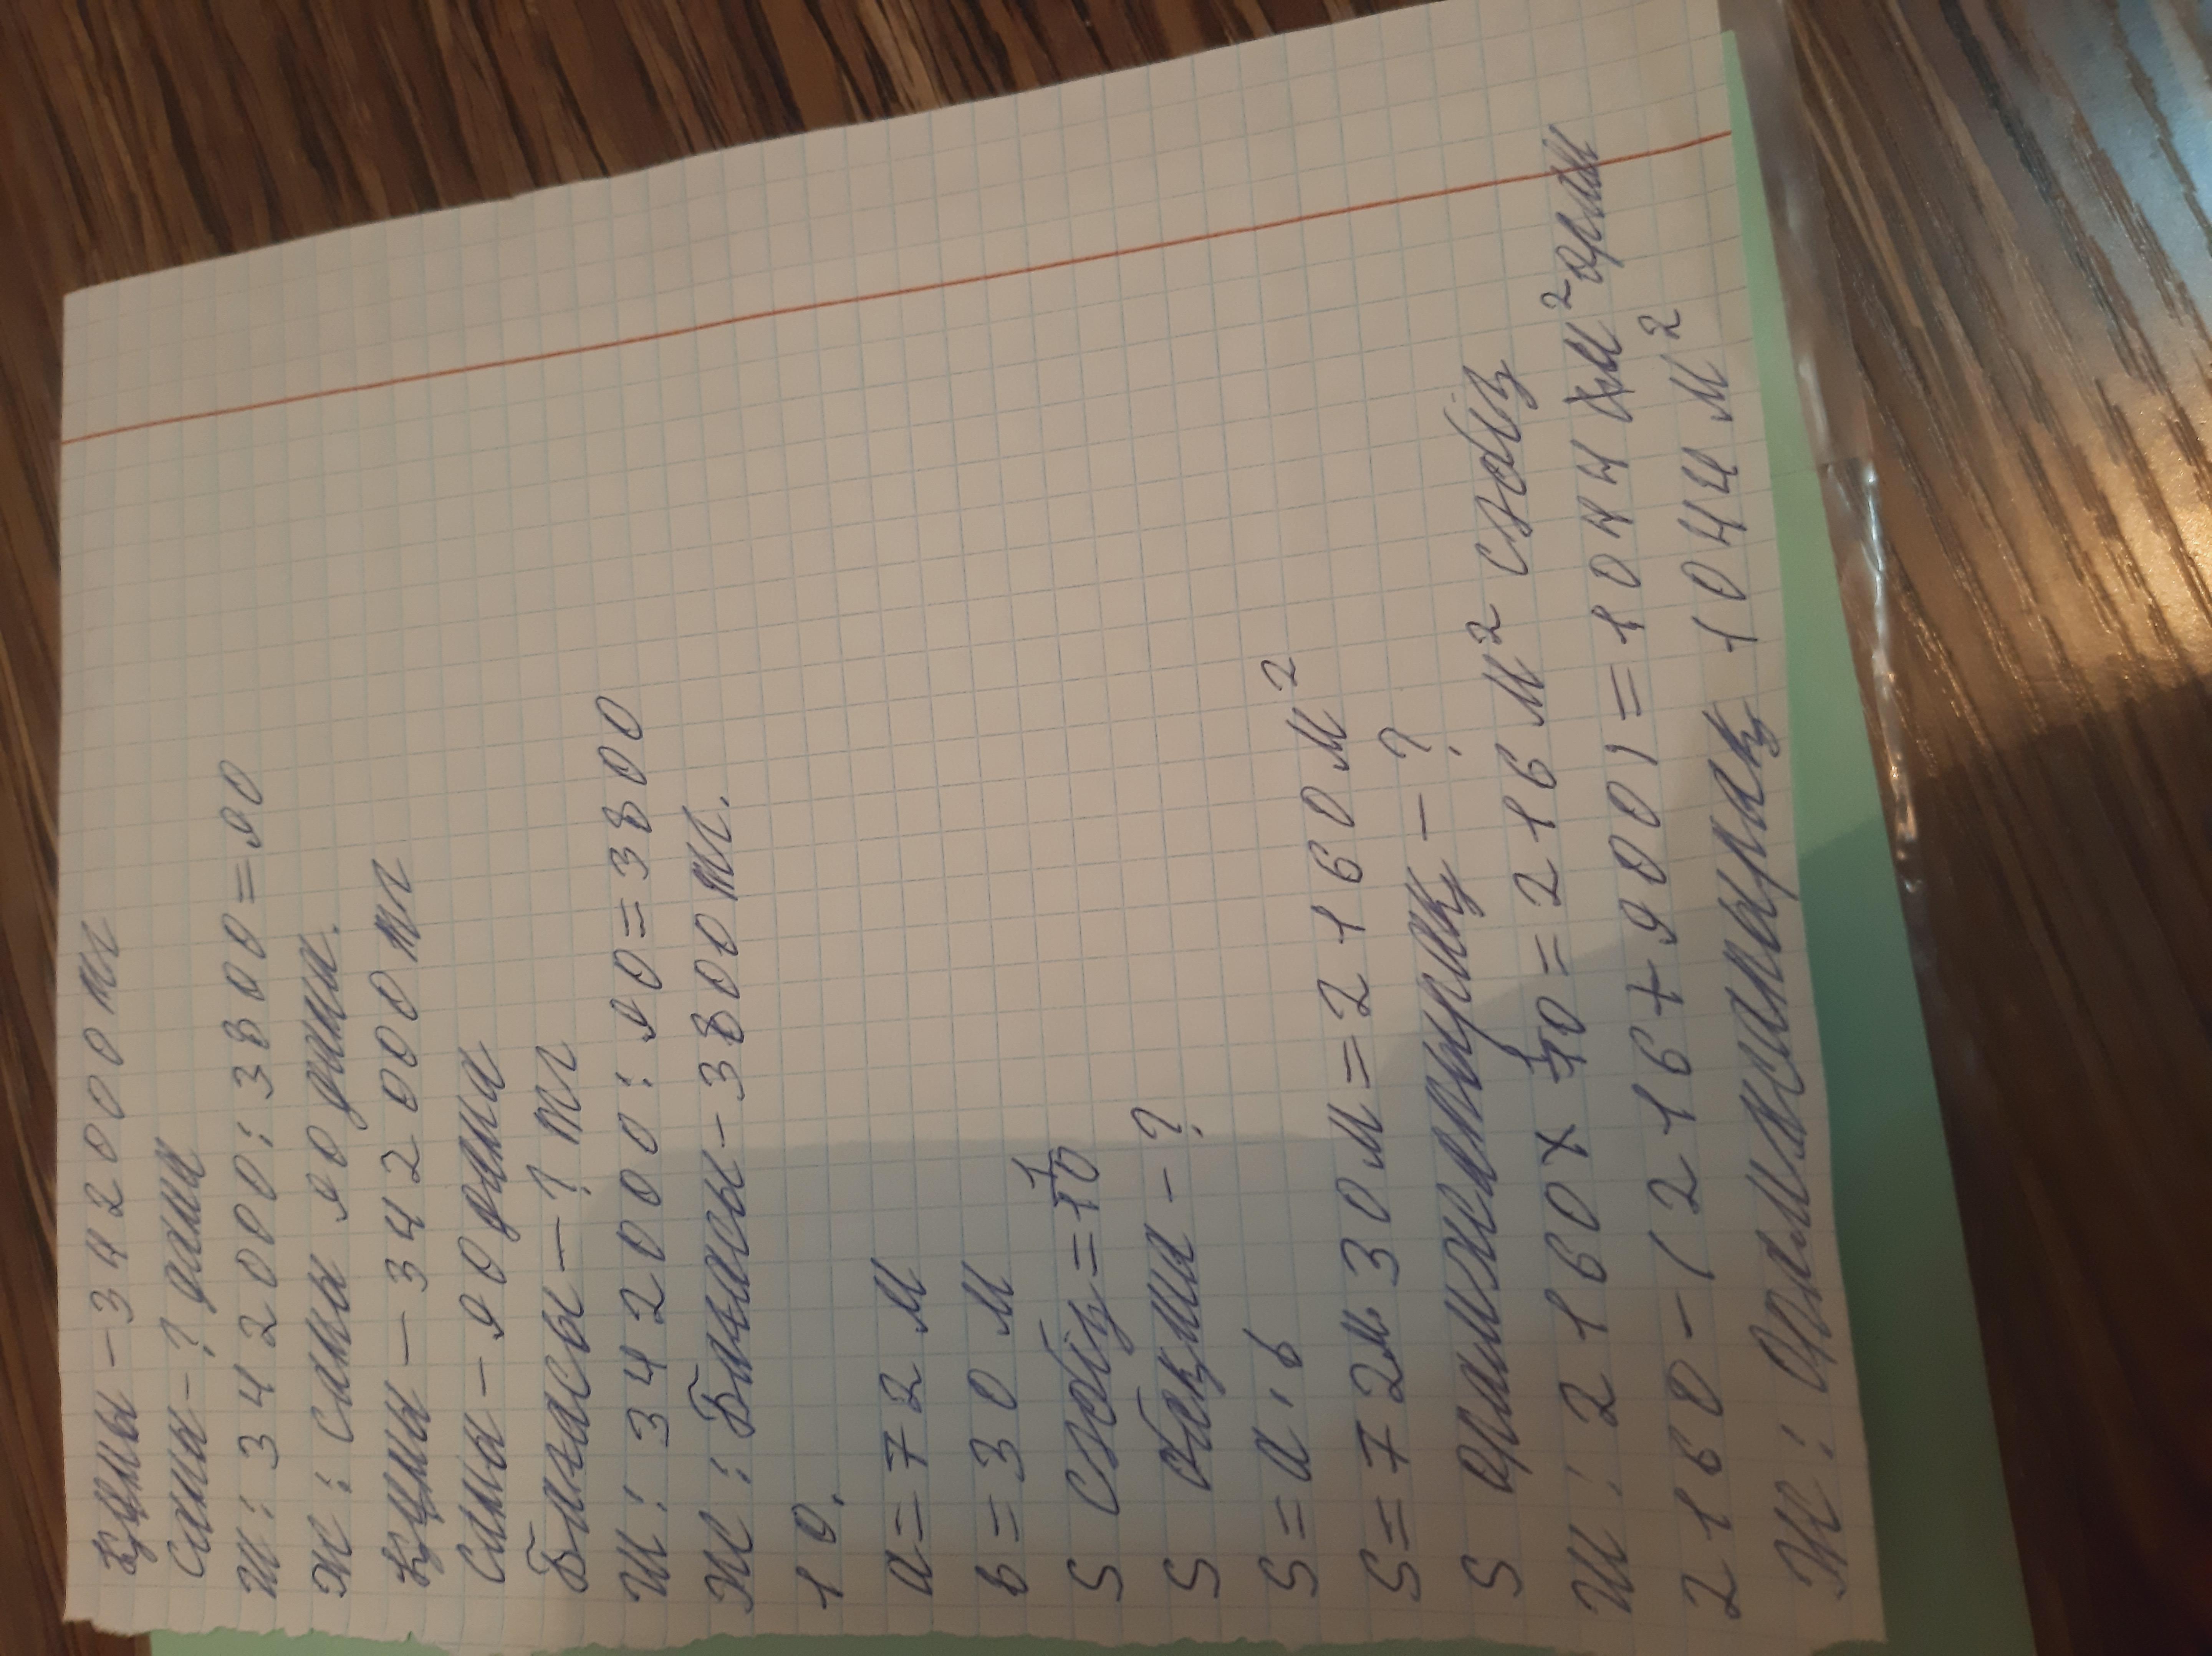 Құны - 342000 тг
Саны - ? дана
Ш: 342000 : 3800 = 90
Ж: саны 90 дана.
Құны - 342000 тг
Саны - 90 дана
Бағасы - ? тг
Ш: 342000 : 90 = 3800
Ж: Бағасы - 3800 тг.
10.
a = 72 м
b = 30 м
S сәбіз = 1/10
S бақша - ?
S = a · b
S = 72м · 30м = 2160 м²
S орамжапырақ - ?
Ш: 2160 × 1/10 = 216 м² сәбіз
2160 - (216 + 900) = 1044 м² орам
Ж: Орамжапырақ 1044 м²